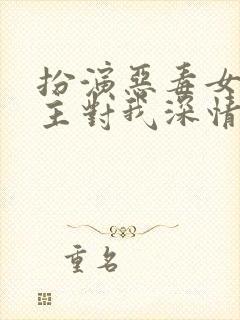 扮演惡毒女
主對我深情
重名